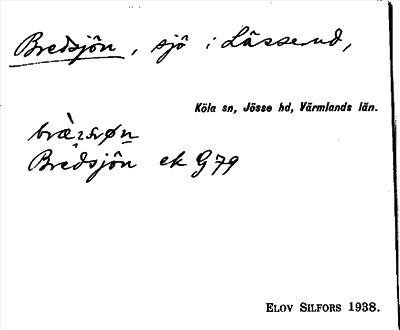 Bredsjön, sjö i Lässerud,
Köla sn, Jösse hd, Värmlands län.
Bredsjön ek G79
ELOV SILFORS 1938.